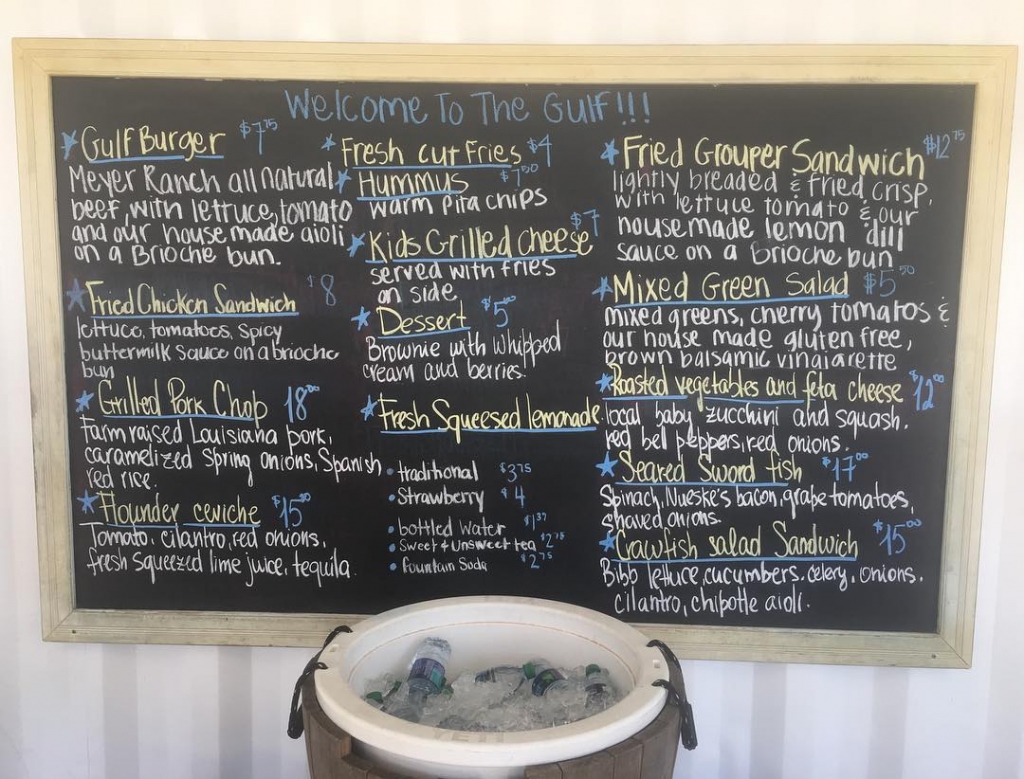 Welcome To The Gulf!!!
Gulf Burger $7.75
Meyer Ranch all natural
beef, with lettuce, tomato
and our house made aioli
on a Brioche bun.
Fried Chicken Sandwich $8
lettuce, tomatoes, spicy
buttermilk sauce on a brioche
bun
Grilled Pork Chop 18.00
Farm raised Louisiana pork,
caramelized spring onions, Spanish
red rice.
Flounder ceviche $15.00
Tomato, cilantro, red onions,
fresh squeezed lime juice, tequila.
Fresh cut Fries $4
Hummus $7.50
warm pita chips
Kids Grilled cheese $7
served with fries
on side
Dessert $5.00
Brownie with whipped
cream and berries.
Fresh Squeesed lemonade
• traditional $3.75
• Strawberry $4
• bottled water $1.37
• Sweet & unsweet tea $2.75
• Fountain Soda $2.75
Fried Grouper Sandwich $12.75
lightly breaded & fried crisp,
with lettuce tomato & our
housemade lemon dill
sauce on a Brioche bun
Mixed Green Salad $5.50
mixed greens, cherry tomatoes &
our house made gluten free,
brown balsamic vinaigrette
Roasted vegetables and feta cheese $12.00
local baby zucchini and squash,
red bell peppers, red onions.
Seared Sword fish $17.00
Spinach, Nueske's bacon, grape tomatoes,
shaved onions.
Crawfish salad Sandwich $15.00
Bibb lettuce, cucumbers, celery, onions,
cilantro, chipotle aioli.
YETI